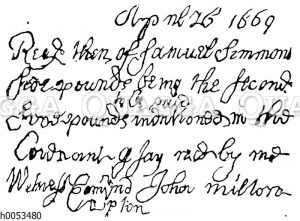 April 26 1669
Recd then of Samuel Simmons
five pounds being the Second
to be paid
five pounds mentioned in the
Covenant I say recd by me
Witness Edmund John Milton
Upton
h0053480